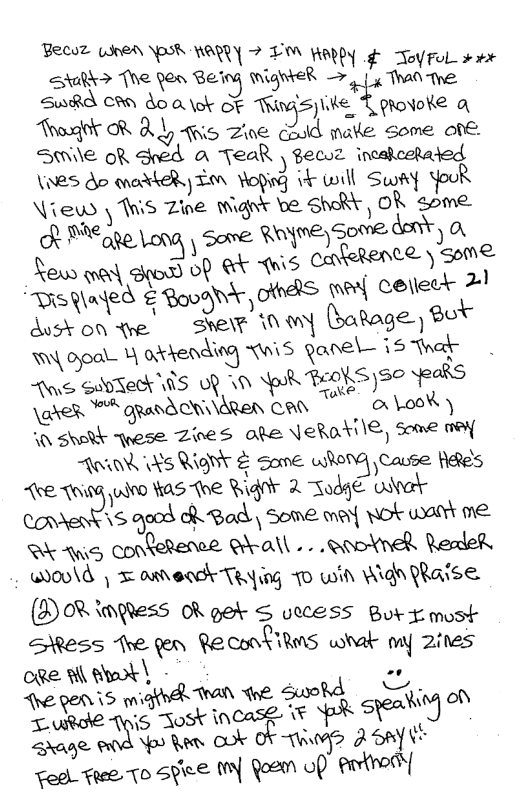 Becuz when your HAPPY → I'm HAPPY & JOYFUL ***
Start → The pen Being mighteR → Than The
sword can do a lot of Thing's, like provoke a
Thought OR 2! This zine could make some one
smile OR shed a Tear, Becuz incarcerated
lives do matter, Im Hoping it will SWAY YouR
View, This zine might be short, OR some
of mine are Long, some Rhyme, some dont, a
few may show up At This Conference, some
Displayed & Bought, others may collect 21
dust on the shelf in my Garage, But
my goal 4 attending This panel is That
This subject in's up in your Books, so years
Later your grandchildren can Take a Look,
in short These zines are veratile, some may
Think it's Right & some wrong, cause Here's
The Thing, who Has The Right 2 Judge what
content is good or Bad, some may Not want me
At This conference At all... Another Reader
would, I am not Trying To win High praise
(2) OR impress OR get Success But I must
stress The pen Reconfirms what my zines
are All About!
The pen is migther Than The sword
I wrote This Just in case if your speaking on
stage And you Ran out of Things 2 SAY!!!
Feel Free To spice my poem up Anthony